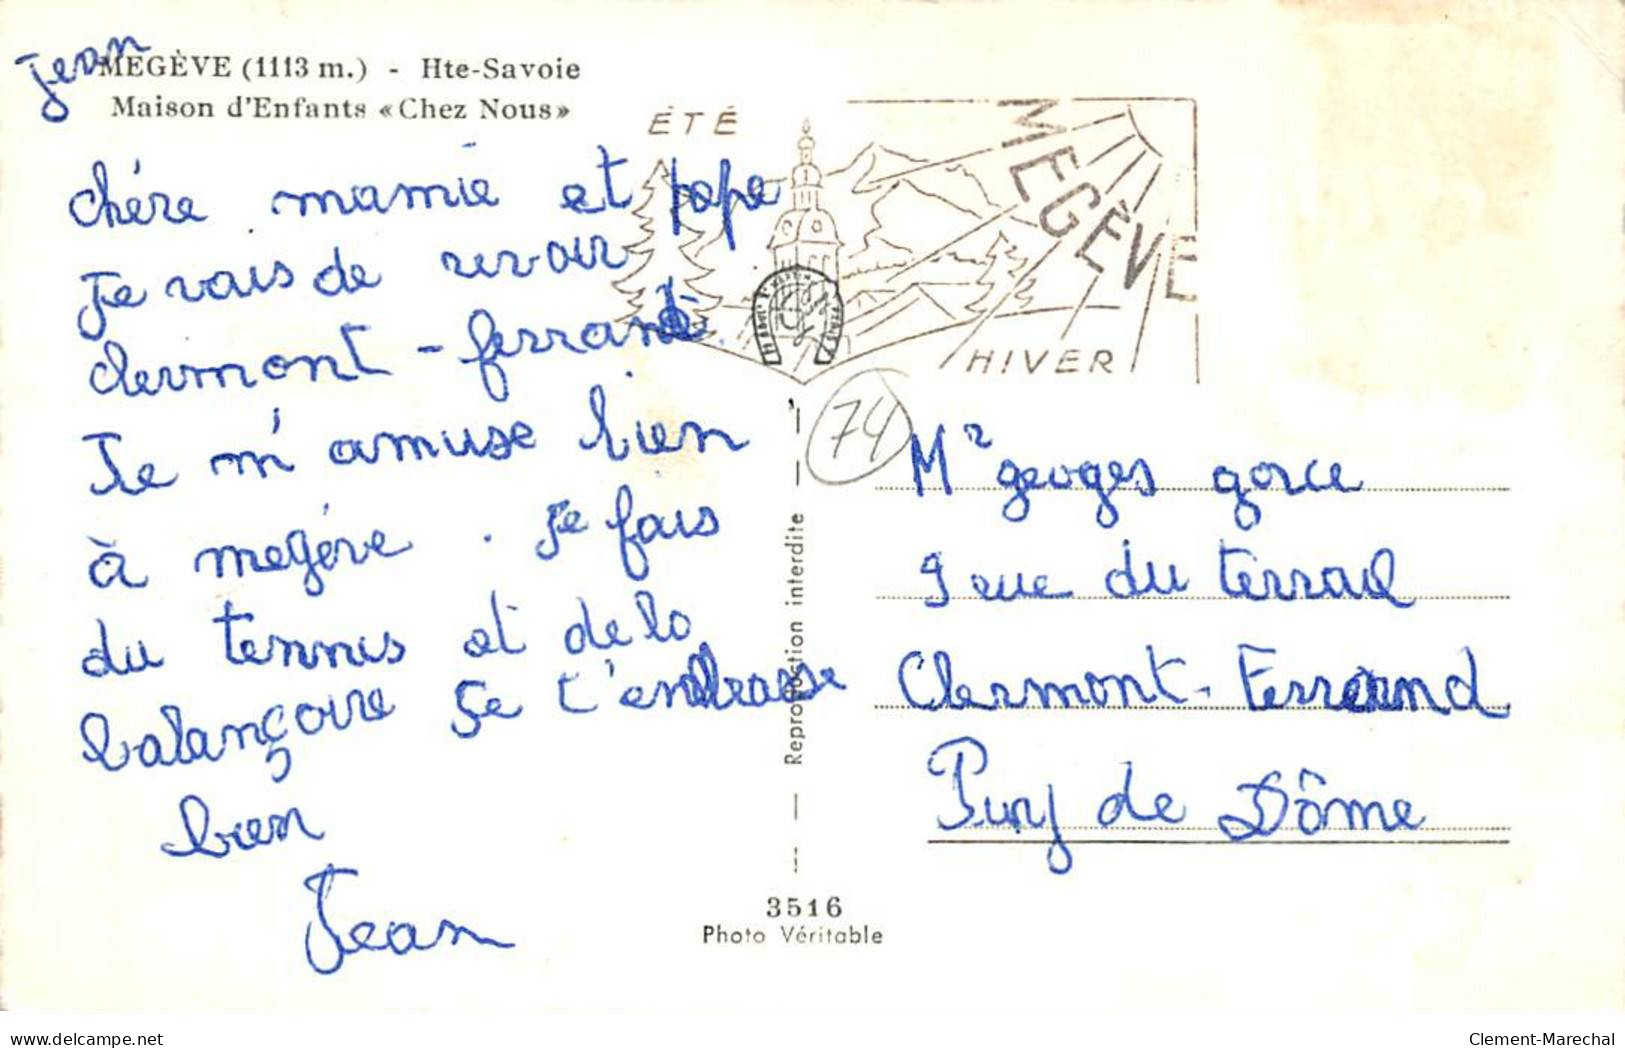 Jean
MEGÈVE (1113 m.) - Hte-Savoie
Maison d'Enfants «Chez Nous»
chére mamie et pape
Je vais de revoir
clermont-ferrand.
Je m'amuse bien
à megève. Je fais
du tennis et de la
balançoire Je t'embrasse
bien
Jean
ÉTÉ
MEGÈVE
HIVER
74
Mr geoges gorce
9 rue du terrail
Clermont-Ferrand
Puy de Dôme
Reproduction interdite
3516
Photo Véritable
Clement-Marechal
delcampe.net